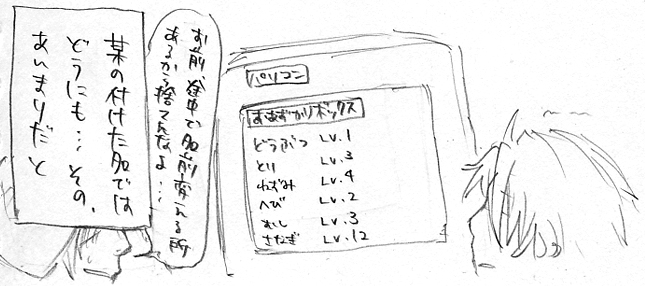 お前、途中で名前変れる所
あるから捨てんなよ…
某の付けた名では
どうにも…その、
あんまりだと
パソコン
おあずかりボックス
どうぶつ Lv.1
とり Lv.3
ねずみ Lv.4
へび Lv.2
いし Lv.3
さなぎ Lv.12